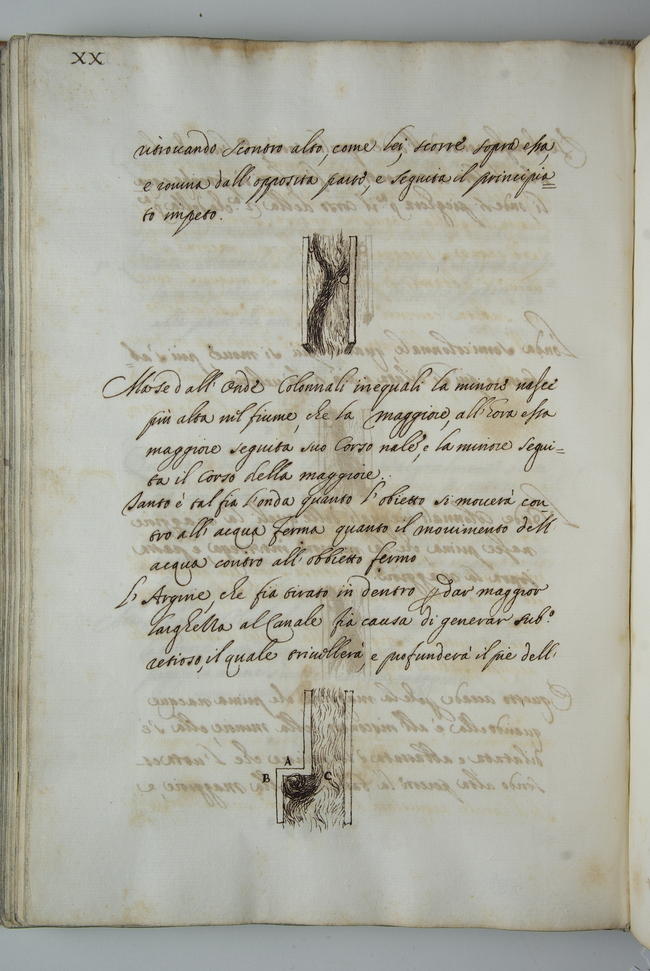 XX
ritrovando scontro alto, come lei, scorre sopra essa,
e rovina dall'opposita parte, e seguita il principia=
to impeto.
Ma se dall'onde Colonnali inequali la minore nasce
più alta nil fiume, che la maggiore, all'hora essa
maggiore seguita suo Corso nale, e la minore segui=
ta il Corso della maggiore.
Tanto è tal fia l'onda quanto l'obietto si moverà con
tro all'acqua ferma quanto il movimento dell
acqua contro all'obbietto fermo
L'Argine, che fia tirato in dentro p dar maggior
larghezza al Canale fia causa di generar sub.o
retroso, il quale trivellerà, e profunderà il pie dell'
A
B
C